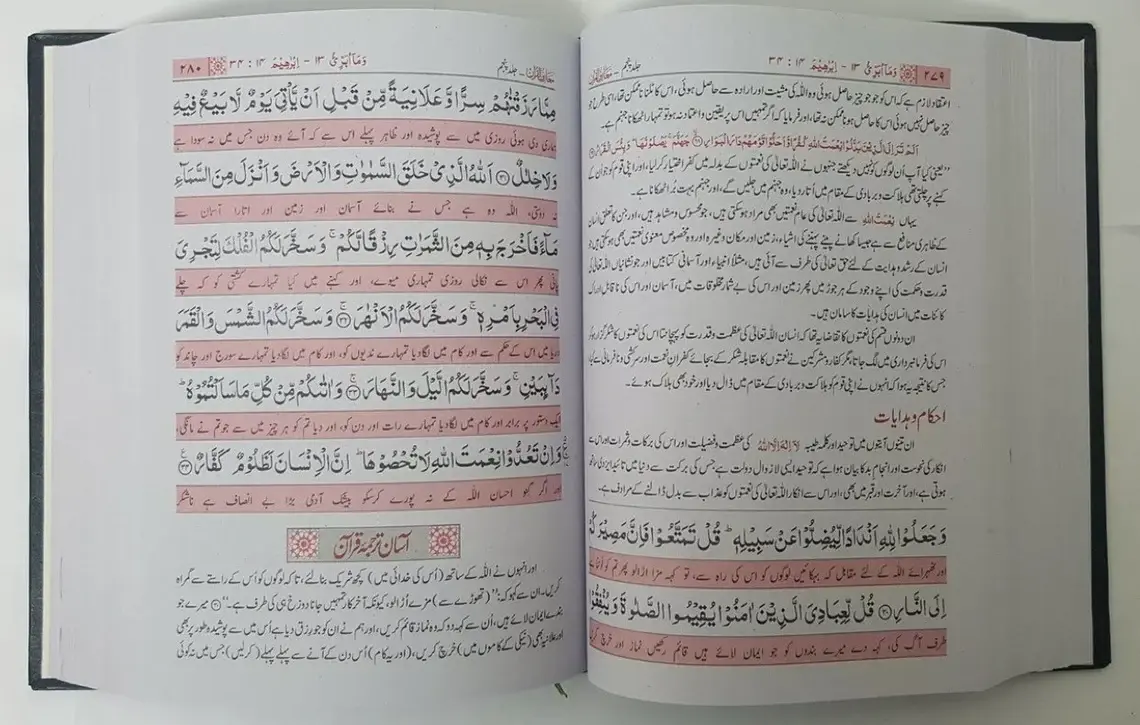 ۲۷۹
معارف القرآن ۔ جلد پنجم
وَمَآ اُبَرِّئُ ۱۳ - اِبْرٰهِیْمَ ۱۴ : ۳۴
اعتقاد لازم ہے کہ اس کو جو جو چیز حاصل ہوئی وہ اللہ کی مشیت اور ارادہ سے حاصل ہوئی، اس کا ٹلنا ناممکن تھا، اسی طرح جو
چیز حاصل نہیں ہوئی اس کا حاصل ہونا ممکن نہ تھا، اور فرمایا کہ اگر تمہیں اس پر یقین و اعتماد نہ ہو تو تمہارا ٹھکانا جہنم ہے۔
اَلَمْ تَرَ اِلَى الَّذِیْنَ بَدَّلُوْا نِعْمَتَ اللّٰهِ كُفْرًا وَّاَحَلُّوْا قَوْمَهُمْ دَارَ الْبَوَارِ ۝ جَهَنَّمَ ۚ یَصْلَوْنَهَا ؕ وَبِئْسَ الْقَرَارُ ۝
”یعنی کیا آپ ان لوگوں کو نہیں دیکھتے جنہوں نے اللہ تعالیٰ کی نعمتوں کے بدلہ میں کفر اختیار کر لیا، اور اپنی قوم کو جو ان کے
کہنے پر چلتی تھی ہلاکت و بربادی کے مقام میں اُتار دیا، وہ جہنم میں جلیں گے، اور جہنم بہت بُرا ٹھکانا ہے۔
یہاں نِعْمَتَ اللّٰهِ سے اللہ تعالیٰ کی عام نعمتیں بھی مراد ہو سکتی ہیں، جو محسوس و مشاہد ہیں، اور جن کا تعلق انسان
کے ظاہری منافع سے ہے جیسا کھانے پینے پہننے کی اشیاء، زمین اور مکان وغیرہ اور وہ مخصوص معنوی نعمتیں بھی ہو سکتی ہیں جو
انسان کے رشد و ہدایت کے لئے حق تعالیٰ کی طرف سے آئی ہیں، مثلًا انبیاء اور آسمانی کتابیں اور جو نشانیاں اللہ تعالیٰ کی
قدرت و حکمت کی اپنے وجود کے ہر جوڑ میں پھر زمین اور اس کی بے شمار مخلوقات میں، آسمان اور اس کی ناقابلِ ادراک
کائنات میں انسان کی ہدایات کا سامان ہیں۔
ان دونوں قسم کی نعمتوں کا تقاضا یہ تھا کہ انسان اللہ تعالیٰ کی عظمت و قدرت کو پہچانتا اس کی نعمتوں کا شکر گزار ہو کر
اس کی فرمانبرداری میں لگ جاتا، مگر کفار و مشرکین نے نعمتوں کا مقابلہ شکر کے بجائے کفرانِ نعمت اور سرکشی و نافرمانی سے کیا،
جس کا نتیجہ یہ ہوا کہ انہوں نے اپنی قوم کو ہلاکت و بربادی کے مقام میں ڈال دیا اور خود بھی ہلاک ہوئے۔
احکام و ہدایات
ان تینوں آیتوں میں توحید اور کلمہ طیبہ لَاۤ اِلٰهَ اِلَّا اللّٰهُ کی عظمت و فضیلت اور اس کی برکات و ثمرات اور اس سے
انکار کی نحوست اور انجامِ بد کا بیان ہوا ہے کہ توحید ایسی لازوال دولت ہے جس کی برکت سے دنیا میں تائید ایزدی ساتھ
ہوتی ہے، اور آخرت اور قبر میں بھی، اور اس سے انکار اللہ تعالیٰ کی نعمتوں کو عذاب سے بدل ڈالنے کے مرادف ہے۔
وَجَعَلُوْا لِلّٰهِ اَنْدَادًا لِّیُضِلُّوْا عَنْ سَبِیْلِهٖ ؕ قُلْ تَمَتَّعُوْا فَاِنَّ مَصِیْرَكُمْ
اور ٹھہرائے اللہ کے لئے مقابل کہ بہکائیں لوگوں کو اس کی راہ سے، تو کہہ مزا اڑالو پھر تم کو لوٹنا ہے
اِلَى النَّارِ ۝ قُلْ لِّعِبَادِیَ الَّذِیْنَ اٰمَنُوْا یُقِیْمُوا الصَّلٰوةَ وَیُنْفِقُوْا
طرف آگ کی، کہہ دے میرے بندوں کو جو ایمان لائے ہیں قائم رکھیں نماز اور خرچ کریں
۲۸۰
معارف القرآن ۔ جلد پنجم
وَمَآ اُبَرِّئُ ۱۳ - اِبْرٰهِیْمَ ۱۴ : ۳۴
مِمَّا رَزَقْنٰهُمْ سِرًّا وَّعَلَانِیَةً مِّنْ قَبْلِ اَنْ یَّاْتِیَ یَوْمٌ لَّا بَیْعٌ فِیْهِ
ہماری دی ہوئی روزی میں سے پوشیدہ اور ظاہر پہلے اس سے کہ آئے وہ دن جس میں نہ سودا ہے
وَلَا خِلٰلٌ ۝ اَللّٰهُ الَّذِیْ خَلَقَ السَّمٰوٰتِ وَالْاَرْضَ وَاَنْزَلَ مِنَ السَّمَآءِ
نہ دوستی، اللہ وہ ہے جس نے بنائے آسمان اور زمین اور اتارا آسمان سے
مَآءً فَاَخْرَجَ بِهٖ مِنَ الثَّمَرٰتِ رِزْقًا لَّكُمْ ۚ وَسَخَّرَ لَكُمُ الْفُلْكَ لِتَجْرِیَ
پانی پھر اس سے نکالی روزی تمہاری میوے، اور کہنے میں کیا تمہارے کشتی کو کہ چلے
فِی الْبَحْرِ بِاَمْرِهٖ ۚ وَسَخَّرَ لَكُمُ الْاَنْهٰرَ ۝ وَسَخَّرَ لَكُمُ الشَّمْسَ وَالْقَمَرَ
دریا میں اس کے حکم سے اور کام میں لگا دیا تمہارے ندیوں کو، اور کام میں لگا دیا تمہارے سورج اور چاند کو
دَآىِٕبَیْنِ ۚ وَسَخَّرَ لَكُمُ الَّیْلَ وَالنَّهَارَ ۝ وَاٰتٰىكُمْ مِّنْ كُلِّ مَا سَاَلْتُمُوْهُ ؕ
ایک دستور پر برابر اور کام میں لگا دیا تمہارے رات اور دن کو، اور دیا تم کو ہر چیز میں سے جو تم نے مانگی،
وَاِنْ تَعُدُّوْا نِعْمَتَ اللّٰهِ لَا تُحْصُوْهَا ؕ اِنَّ الْاِنْسَانَ لَظَلُوْمٌ كَفَّارٌ ۝
اور اگر گنو احسان اللہ کے نہ پورے کر سکو بیشک آدمی بڑا بے انصاف ہے ناشکر
آسان ترجمۂ قرآن
اور انہوں نے اللہ کے ساتھ (اُس کی خدائی میں) کچھ شریک بنا لئے، تاکہ لوگوں کو اُس کے راستے سے گمراہ
کریں۔ ان سے کہو کہ: ”(تھوڑے سے) مزے اُڑالو، کیونکہ آخر کار تمہیں جانا دوزخ ہی کی طرف ہے۔“ میرے جو
بندے ایمان لائے ہیں، اُن سے کہہ دو کہ وہ نماز قائم کریں، اور ہم نے ان کو جو رزق دیا ہے اُس میں سے پوشیدہ طور پر بھی
اور علانیہ بھی (نیکی کے کاموں میں) خرچ کریں، (اور یہ کام) اُس دن کے آنے سے پہلے پہلے (کر لیں) جس میں نہ کوئی